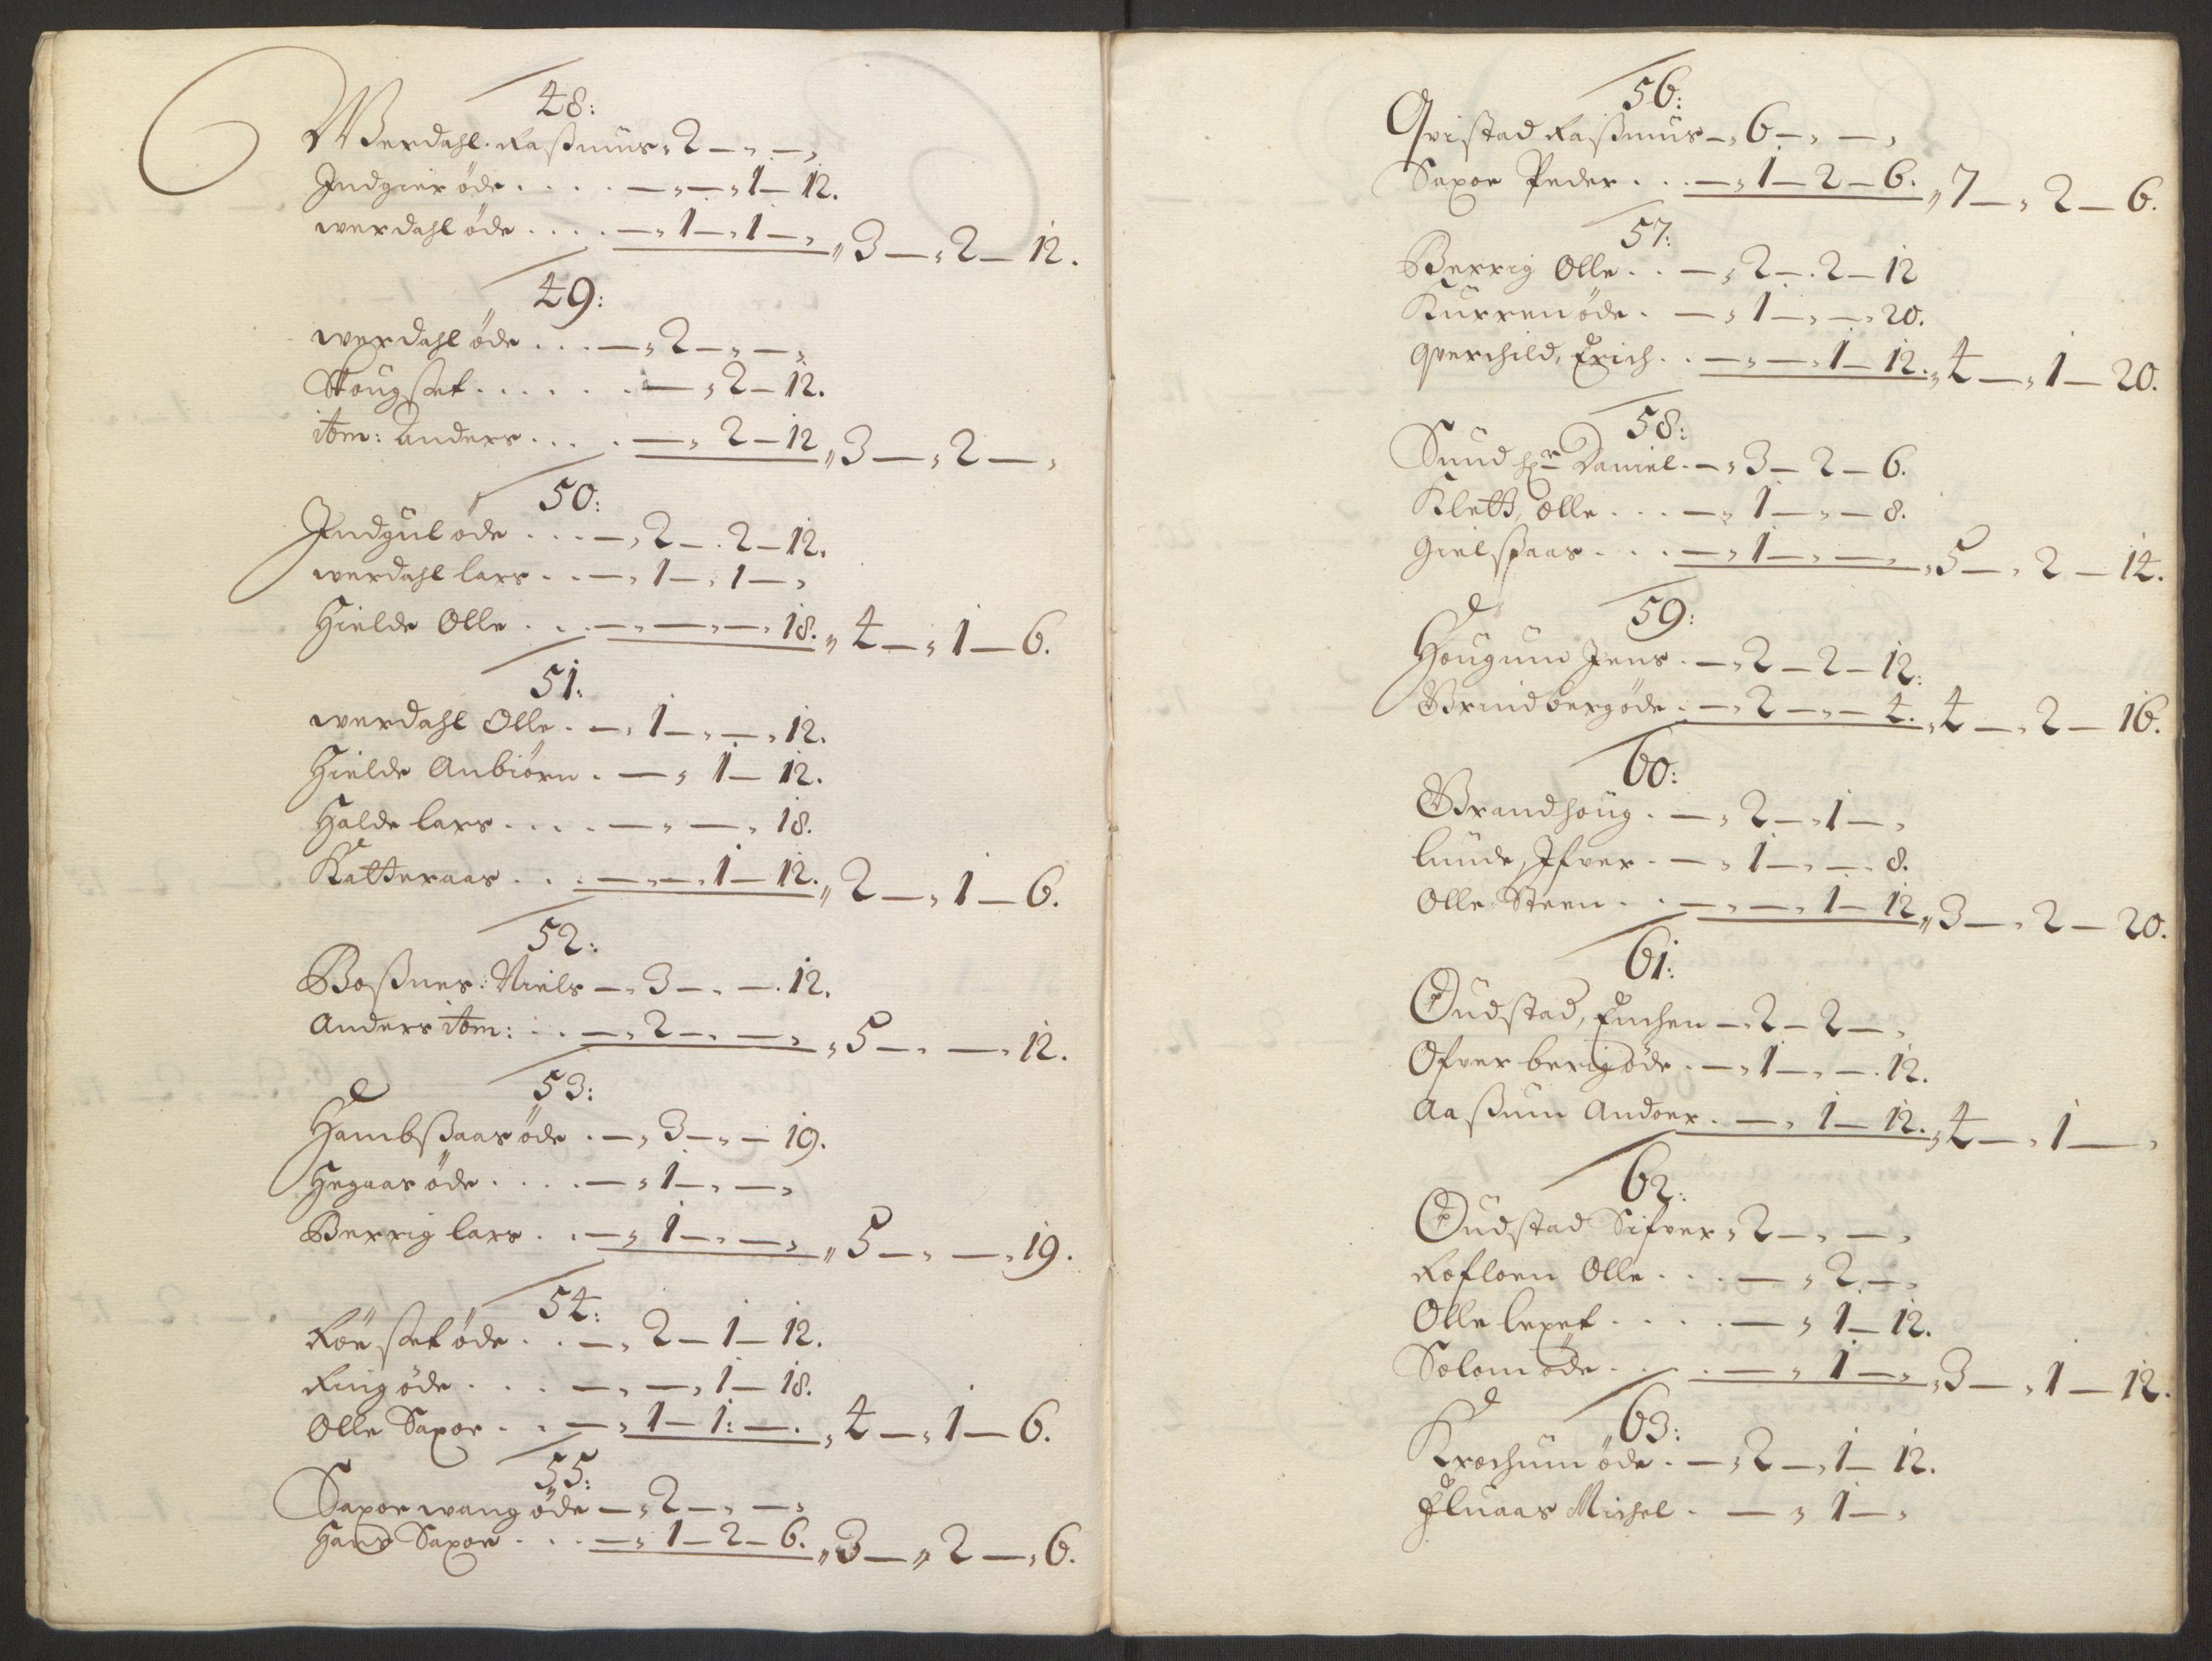 48:
Werdahl Rasmus „ 2 — „ — „
Indgier öde . . . . — „ — „ 1 — 12.
werdahl öde . . . . — „ 1 — „ 1 — „ „ 3 — „ 2 — 12.
49:
werdahl öde . . . — „ 2 — „ — „
Skougset . . . . . . — „ 2 — 12.
itm: Anders . . . . — „ 2 — 12 „ 3 — „ 2 — „
50:
Indgul öde . . . — „ 2 — . 2 — 12.
werdahl lars . . — „ 1 — „ 1 — „
Hielde Olle . . . — „ — „ — „ 18. „ 4 — „ 1 — 6.
51:
werdahl Olle . — „ 1 — „ — „ 12.
Hielde Anbiörn . — „ 1 — 12.
Halde lars . . . . — „ — „ 18.
Katteraas . . . — „ — „ 1 — 12. „ 2 — „ 1 — 6.
52:
Bosnes: Niels — „ 3 — „ — . 12.
Anders itm: . . — „ 2 — „ — „ „ 5 — „ — „ 12.
53:
Hambßaas öde . — „ 3 — „ — 19.
Hegaas öde . . . . — „ 1 — „ — „
Berrig lars . . — „ 1 — „ — „ „ 5 — „ — „ 19.
54:
Röe set öde . . — „ 2 — 1 — 12.
Ring öde . . . — „ — „ 1 — 18.
Olle Saxor . . — „ 1 — 1: — . „ 4 — „ 1 — 6.
55:
Saxor wang öde — „ 2 — „ — „
Hans Saxor . . . — „ 1 — 2 — 6. „ 3 — „ 2 — „ 6.
56:
Qvistad Raßmus — „ 6 — „ — „
Saxor Peder . . . — „ 1 — 2 — 6. „ 7 — „ 2 — 6.
57:
Berrig Olle . . — „ 2 — . 2 — 12
Kurren öde . — „ 1 — „ — „ 20.
Qverchild, Erich . . — „ — „ 1 — 12. „ 4 — „ 1 — 20.
58:
Sund hr Daniel . — „ 3 — 2 — 6.
Klett, olle . . . — „ 1 — „ — 8.
Gielßaas . . . — „ 1 — „ — „ „ 5 — „ 2 — 14.
59:
Hougum Jens . — „ 2 — 2 — 12:
Brindberg öde . — „ 2 — „ — 4. „ 4 — „ 2 — 16.
60:
Brandhoug . — „ 2 — „ 1 — „
lunde, Ifver . — „ 1 — „ — „ 8.
Olle Steen . . — „ — „ 1 — 12 „ 3 — „ 2 — 20.
61:
Oudstad, Enchen — „ 2 — 2 — „
Ofver berig öde . — „ 1 — „ — . 12.
Aaßum Andors . — „ 1 — 12. „ 4 — „ 1 — „
62:
Oudstad Sifver „ 2 — „ — „
Rofloen Olle . . . — „ 2 — „
Olle lexet . . . . — „ 1 — 12.
Solom öde . . . . — „ 1 — „ „ 3 — „ 1 — 12.
63:
Krochum öde . — „ 2 — „ 1 — 12.
Elnaas Michel . — „ 1 — „